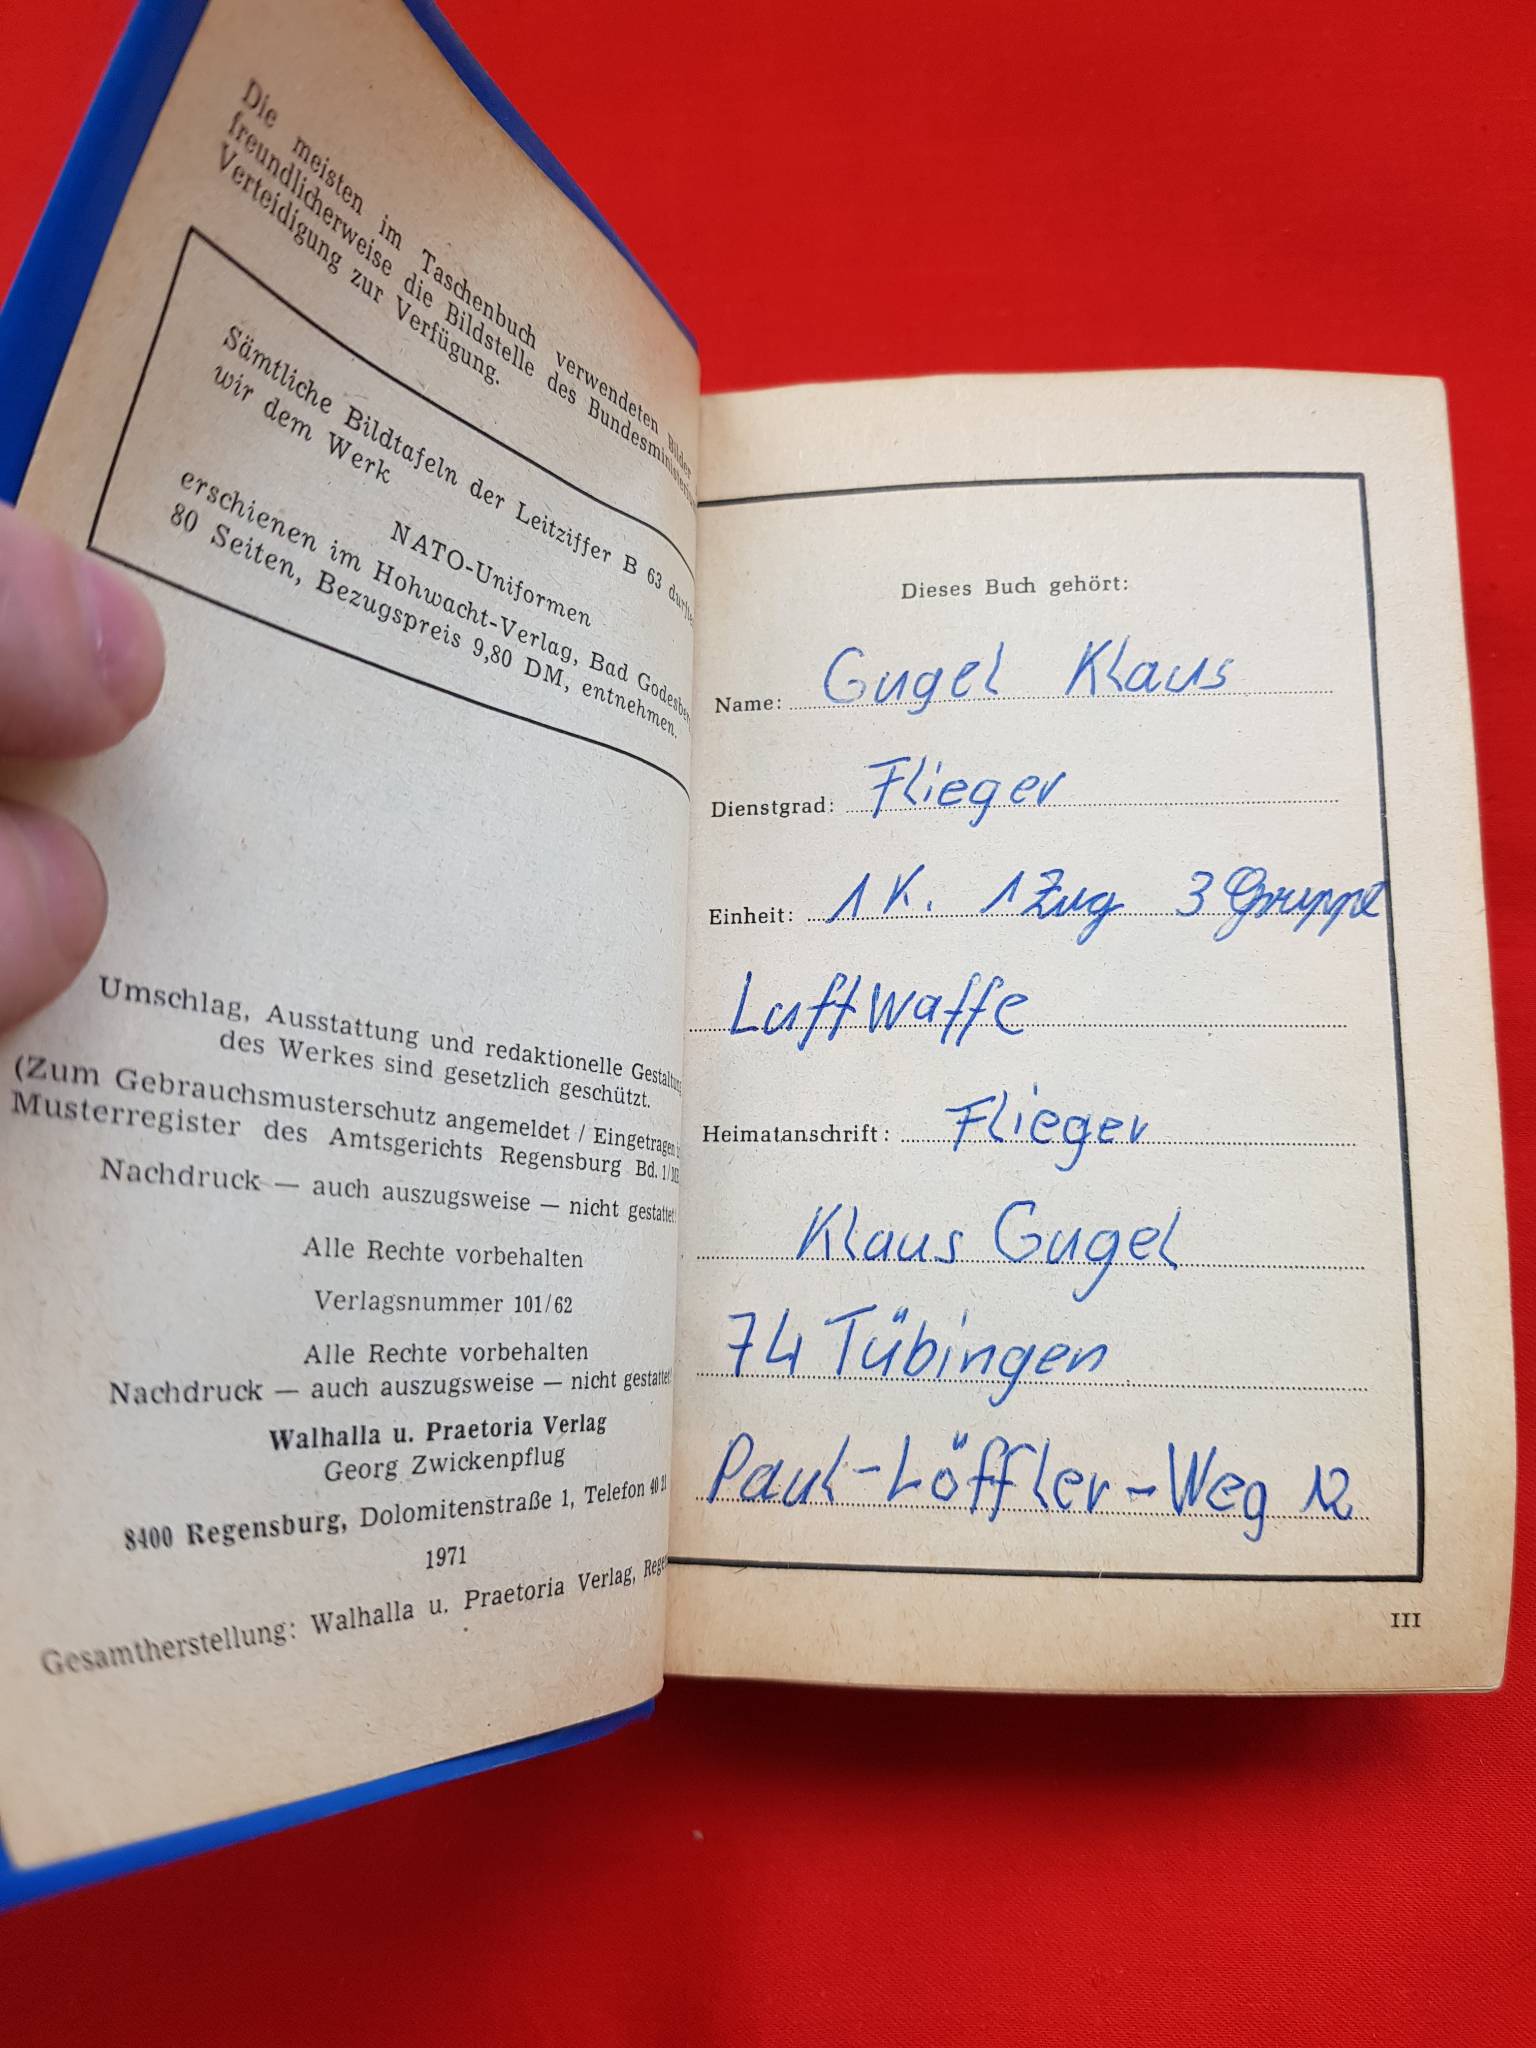 Die meisten im Taschenbuch verwendeten Bilder
freundlicherweise die Bildstelle des Bundesministeriu
Verteidigung zur Verfügung.
Sämtliche Bildtafeln der Leitziffer B 63 durfte
wir dem Werk
NATO-Uniformen
erschienen im Hohwacht-Verlag, Bad Godesber
80 Seiten, Bezugspreis 9,80 DM, entnehmen.
Umschlag, Ausstattung und redaktionelle Gestaltung
des Werkes sind gesetzlich geschützt.
(Zum Gebrauchsmusterschutz angemeldet / Eingetragen i
Musterregister des Amtsgerichts Regensburg Bd. 1/
Nachdruck — auch auszugsweise — nicht gestattet!
Alle Rechte vorbehalten
Verlagsnummer 101/62
Alle Rechte vorbehalten
Nachdruck — auch auszugsweise — nicht gestattet!
Walhalla u. Praetoria Verlag
Georg Zwickenpflug
8400 Regensburg, Dolomitenstraße 1, Telefon 40 21
1971
Gesamtherstellung: Walhalla u. Praetoria Verlag, Rege
Dieses Buch gehört:
Name: Gugel Klaus
Dienstgrad: Flieger
Einheit: 1 K. 1 Zug 3 Gruppe
Luftwaffe
Heimatanschrift: Flieger
Klaus Gugel
74 Tübingen
Paul-Löffler-Weg 12
III